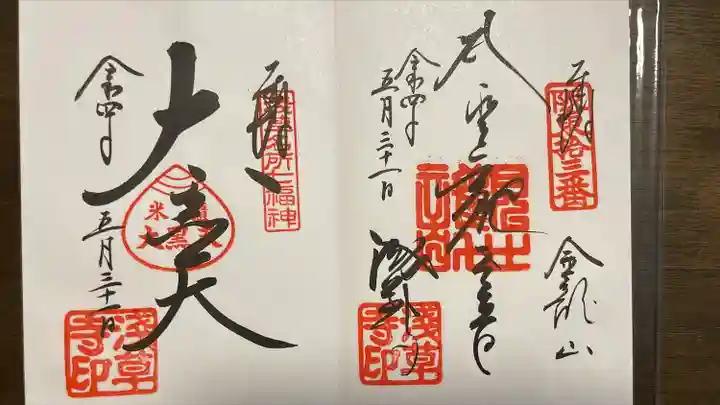 奉拝
坂東拾三番
聖観世音
金龍山
浅草寺
令和四年
五月三十一日
浅草寺印
奉拝
浅草名所七福神
大黒天
米
大黒天
令和四年
五月三十一日
浅草寺印